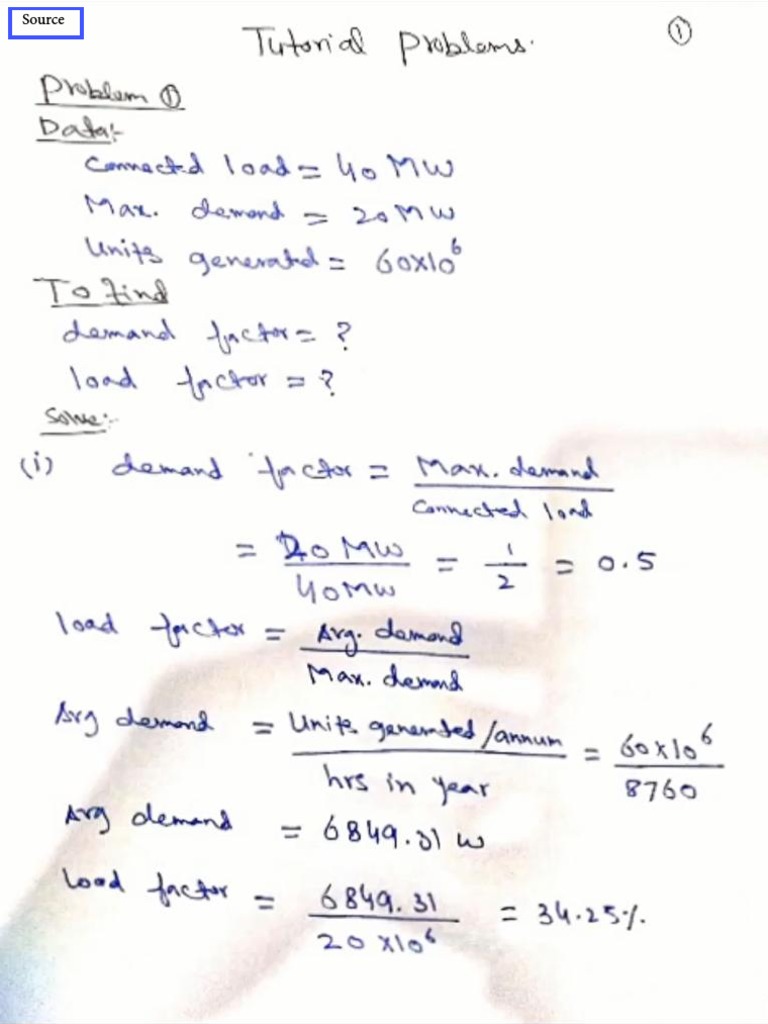 Source
Tutorial problems. ①
Problem ①
Data:-
Connected load = 40 MW
Max. demand = 20 MW
Units generated = 60x10⁶
To find
demand factor = ?
load factor = ?
Solve:-
(i) demand factor = Max. demand / Connected load
= 20 MW / 40MW = 1/2 = 0.5
load factor = Avg. demand / Max. demand
Avg demand = Units generated/annum / hrs in year = 60x10⁶ / 8760
Avg demand = 6849.31 w
load factor = 6849.31 / 20 x10⁶ = 34.25%.